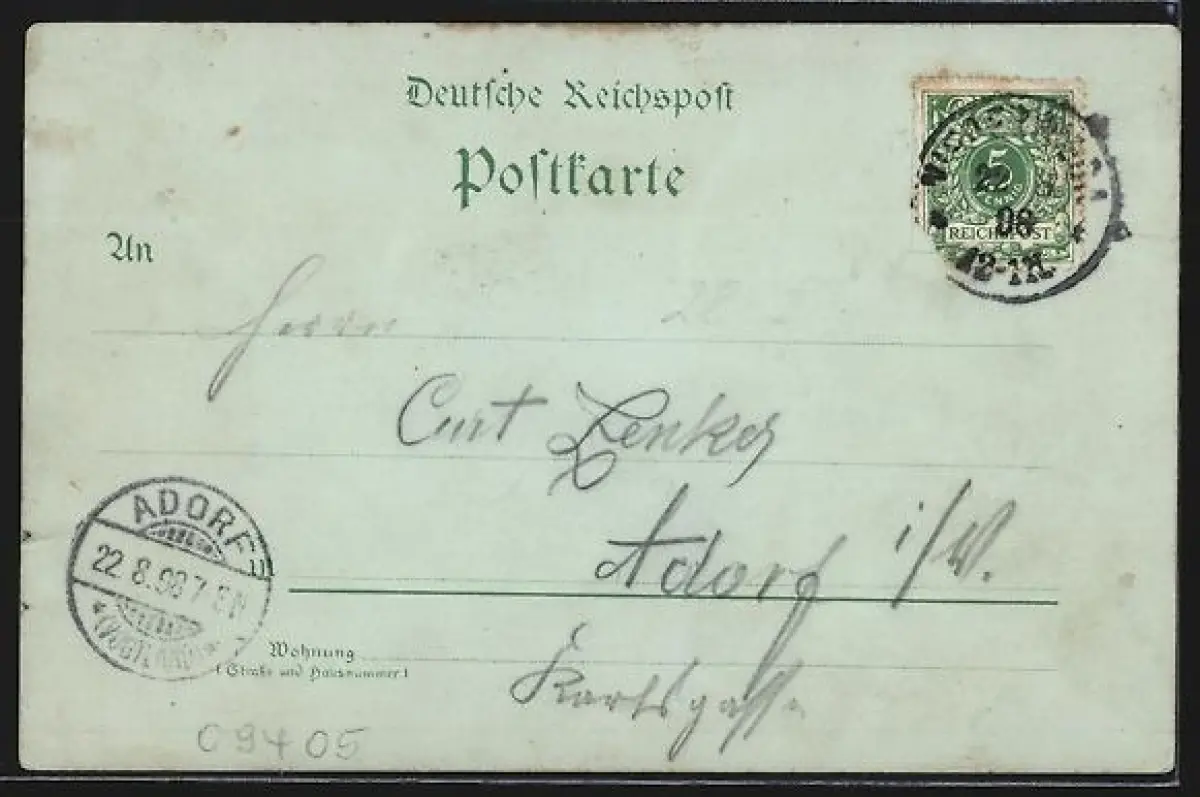 Deutsche Reichspost
Postkarte
An
5
REICHSPOST
22
98
12-1N.
Herrn
Curt Zenker
Adorf i/V.
ADORF
22.8.98 7-8N
(VOGTLAND)
Wohnung
(Straße und Hausnummer)
09405